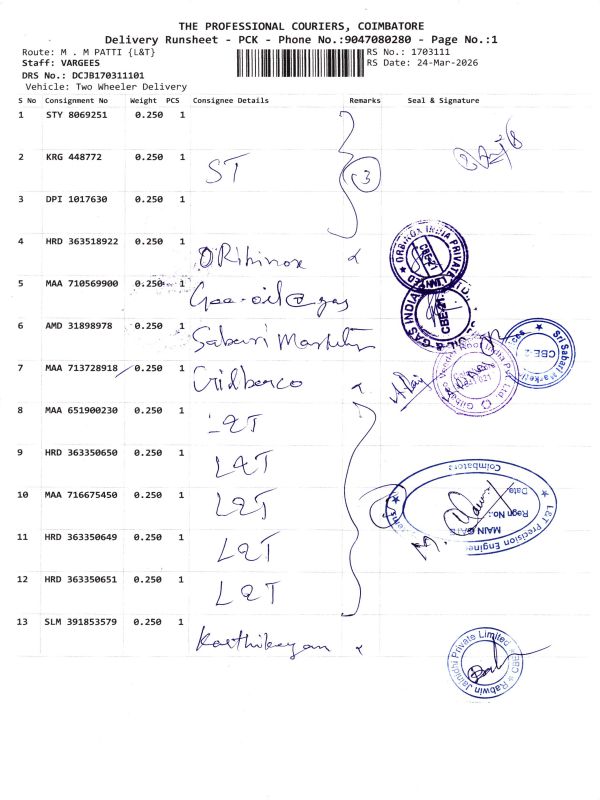 THE PROFESSIONAL COURIERS, COIMBATORE
Delivery Runsheet - PCK - Phone No.:9047080280 - Page No.:1
Route: M . M PATTI {L&T} RS No.: 1703111
Staff: VARGEES RS Date: 24-Mar-2026
DRS No.: DCJB170311101
Vehicle: Two Wheeler Delivery
S No Consignment No Weight PCS Consignee Details Remarks Seal & Signature
1 STY 8069251 0.250 1
2 KRG 448772 0.250 1 ST 3
3 DPI 1017630 0.250 1
4 HRD 363518922 0.250 1 ORbinox
ORBINOX INDIA PRIVATE LIMITED
5 MAA 710569900 0.250 1 Gee-oil @ gas
OIL & GAS INDIA CBE-21
6 AMD 31898978 0.250 1 Sabari
Sri Sabari CBE-2
7 MAA 713728918 0.250 1 Gilbarco
8 MAA 651900230 0.250 1 L&T
9 HRD 363350650 0.250 1 L&T
10 MAA 716675450 0.250 1 L&T
L&T Precision Coimbatore
MAIN GATE
Regn No.:
Date
11 HRD 363350649 0.250 1 L&T
12 HRD 363350651 0.250 1 L&T
13 SLM 391853579 0.250 1 Karthikeyan
Private Limited